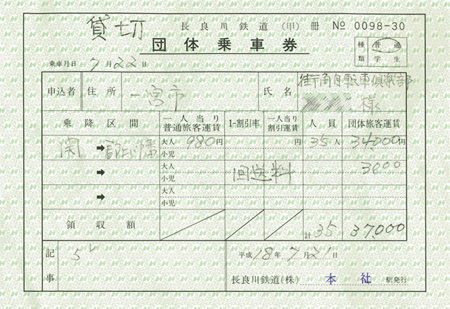 貸切 長良川鉄道 (甲) 冊 № 0098-30
団体乗車券
種類 普通 学生
乗車月日 7月22日
申込者 住所 一宮市 氏名 様
乗降区間 一人当り普通旅客運賃 1-割引率 一人当り割引運賃 人員 団体旅客運賃
関 ➡ 大人 980円 円 35人 34000円
小児
➡ 大人 回送料 3000
小児
➡ 大人
小児
領収額 計35 37,000
記事 5
平成18年7月21日
長良川鉄道(株) 本社 駅発行